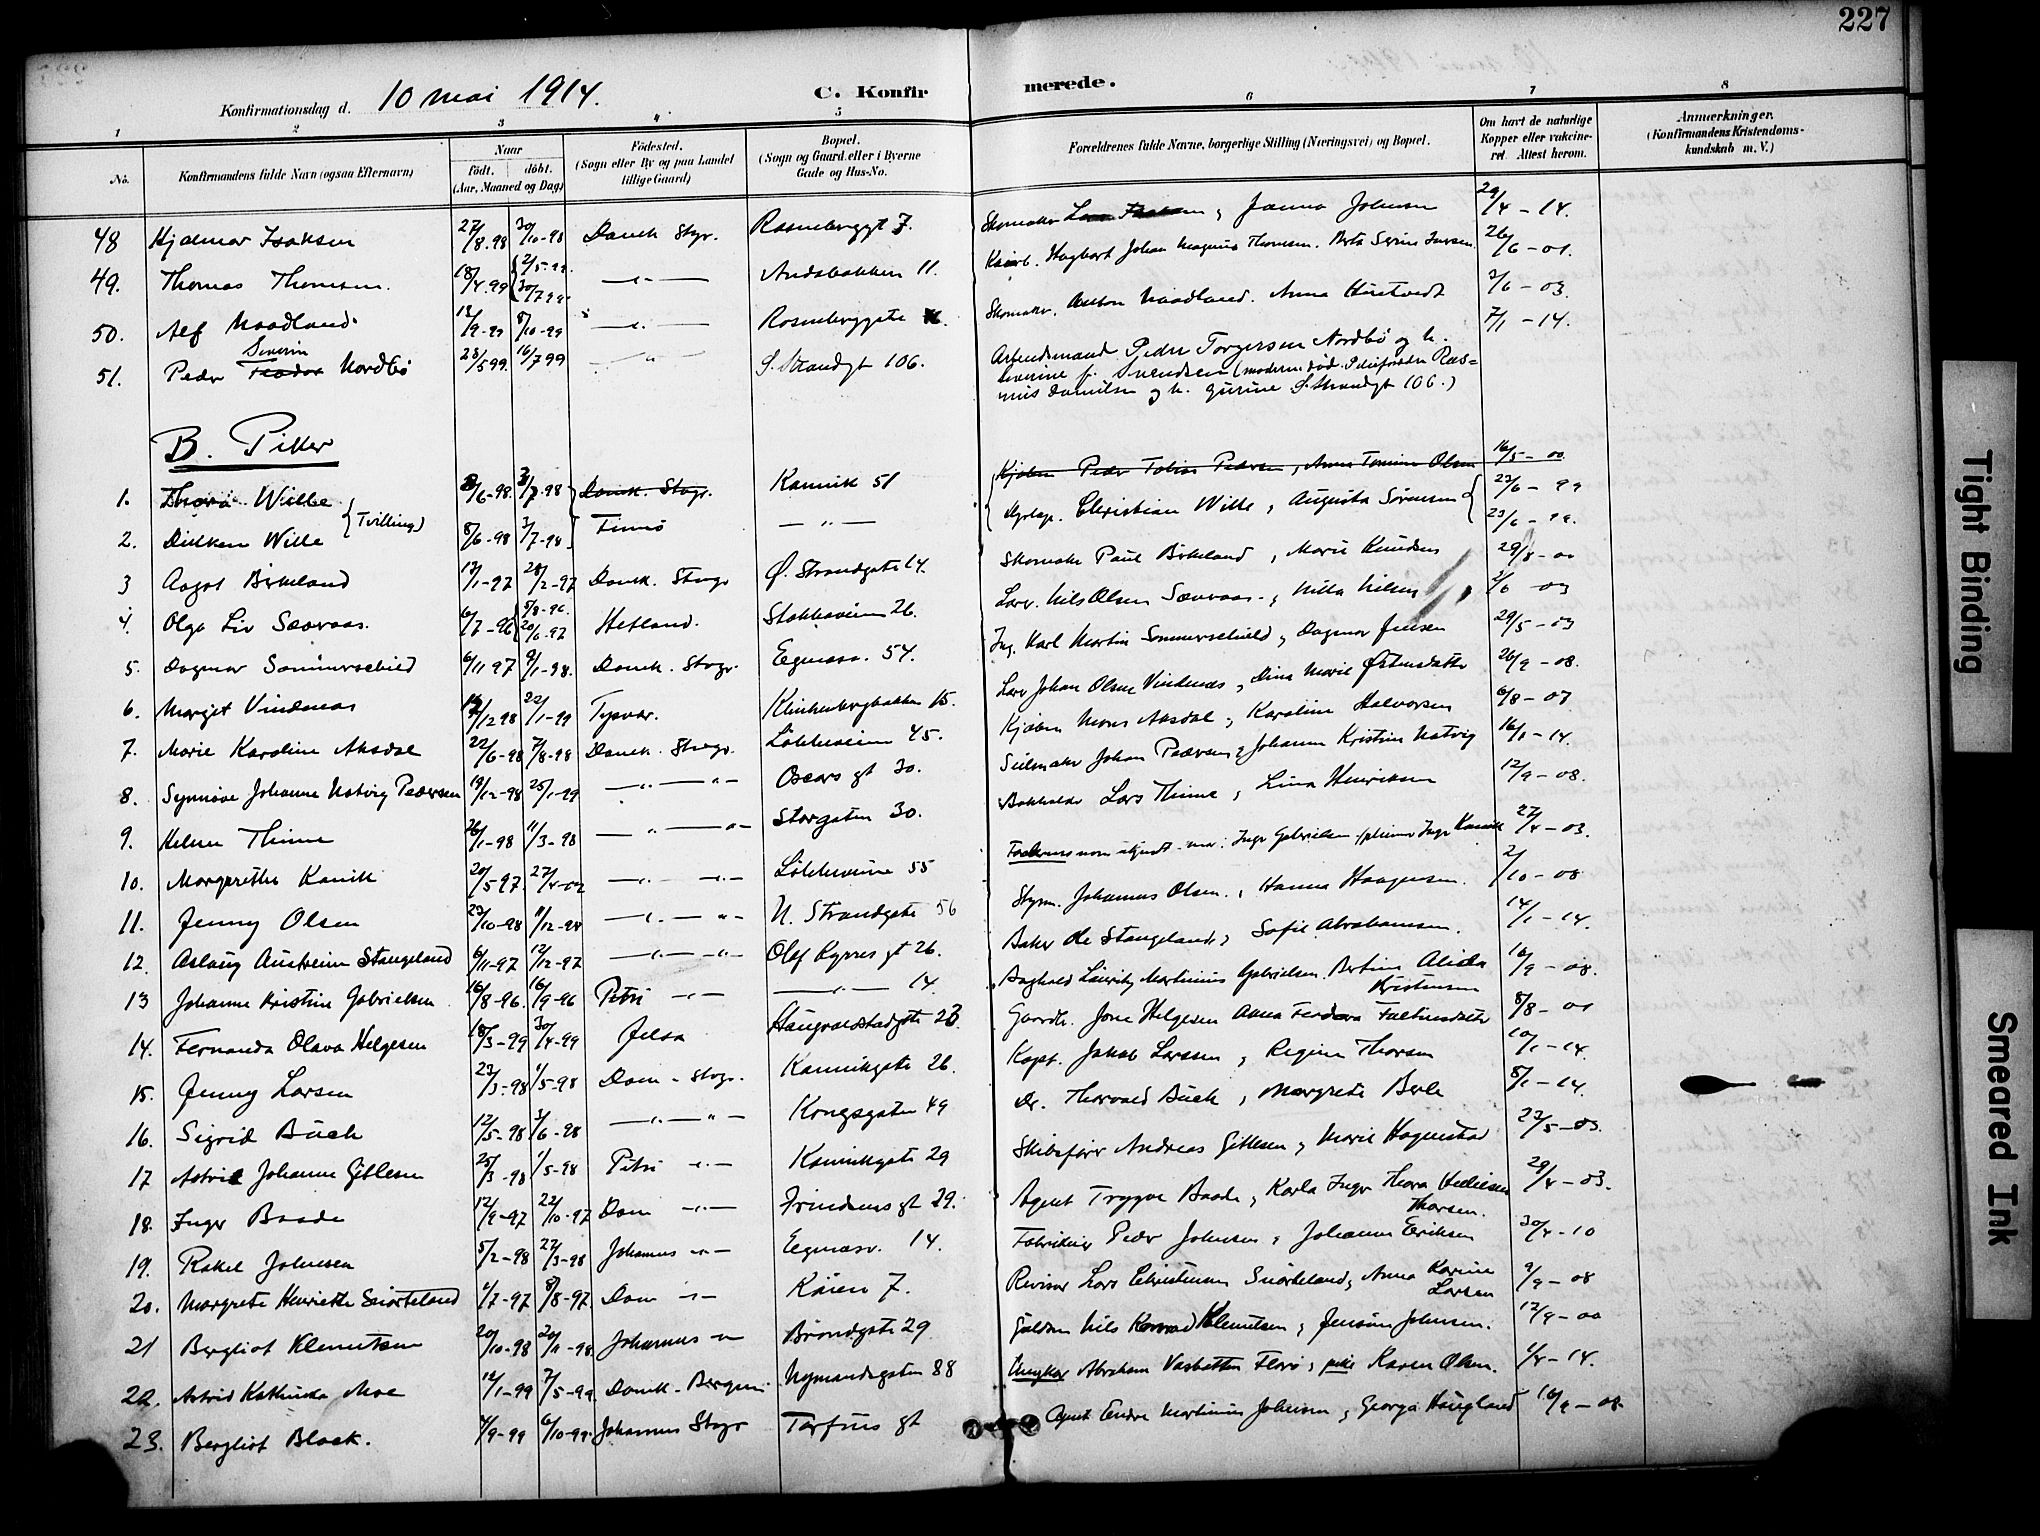 227
Konfirmationsdag d. 10 mai 1914.
C. Konfirmerede.
1 2 3 4 5 6 7 8
No. Konfirmandens fulde Navn (ogsaa Efternavn) Naar født. døbt. (Aar, Maaned og Dag) Fødested. (Sogn eller By og paa Landet tillige Gaard) Bopæl. (Sogn og Gaard eller i Byerne Gade og Hus-No. Forældrenes fulde Navne, borgerlige Stilling (Næringsvei) og Bopæl. Om havt de naturlige Kopper eller vakcineret. Attest herom. Anmærkninger. (Konfirmandens Kristendomskundskab m. V.)
48 Hjalmar Isaksen 27/8.98 30/10-98 Domk. Stgr. Rosenberggt 7. Skomaker Janna Johnsen 29/4-14.
49. Thomas Thomsen. 18/4.99 Andsbakken 11. Hagbart Johan Magnus Thomsen. Berta Serine Iversen 26/6-01.
50. Alf Maadland. 8/10-99 Rosenberggate Skomaker. Anton Maadland. Anna 2/6-03.
51. Peder Severin Nordbö 16/7 99 S. Strandgt 106. Arbeidsmand Peder Torgersen Nordbö og h. Severine f. Svendsen (moderen död. Pleieforældre Rasmus Danielsen og h. Gurine S. Strandgt 106.) 7/1-14.
B. Piker
1. Thora Wille (Tvilling) 8/6-98. 3/7-98 Domk. Stgr. Kannik 51 Kjöbm Peder Tobias Pedersen, Anna Tomine Olsen 16/5-00
2. Didken Wille 8/6-98 3/7-98. Finnö Christian Wille, Augusta Sörensen 23/6-99 23/6-99.
3 Aagot Birkeland 28/2-97 Domk. Stvgr Ø. Strandgate 14. Skomaker Paul Birkeland, Marie Knudsen
4. Olga Liv Sævraas. 6/7-96 Hetland. Stokkaveien 26. Nils Olsen Sævraas, Milla Nilsen
5. Dagmar Sommerschild 6/11 97 9/1-98. Domk. Stvgr. Eganesv. 54. Ing. Karl Martin Sommerschield, Dagmar Jensen 29/5-03
6. Margit Vindenes 22/1-99 Tysvær. Klinkenbergbakken 15. Johan Olsen Vindenes, Dina Marie Østensdatter 26/9-08.
7. Marie Karoline Aksdal 22/6-98 7/8-98 Domk. Stvgr. Lökkeveien 45. Kjöbm Mons Aksdal, Karoline Halvorsen 6/8-07
8. Synnöve Johanne Natvig Pedersen 19/12-98 25/1-99 Oscars gt 30. Seilmaker Johan Pedersen, Johanne Kristine Natvig 16/1-14.
9. Helene Thime 26/1-98 11/3-98 Storgaten 30. Bokholder Lars Thime, Lina Henriksen 12/9-08.
10. Margrethe Kannik 20/5-97. 27/4-02 Lökkeveien 55 27/4-03.
11. Jenny Olsen 23/10-98 11/12-98 N. Strandgate 56 Styrm. Johannes Olsen, Hanna Haagensen. 2/10-08
12. Aslaug Austreim Stangeland 6/11-97 12/12-97 Olaf Kyrres gt 26. Baker Ole Stangeland, Sofie Abrahamsen. 14/1-14.
13 Johanne Kristine Gabrielsen 16/8-96. 16/9-96 Petri 14. Laurits Martinius Gabrielsen. Bertine Alida Kristensen 16/9-08.
14. Fernanda Olava Helgesen 18/3-99 30/4-99 Jelsa Haugvaldstadgate 23. Gaardbr. Jone Helgesen Anna 8/8-01
15. Jenny Larsen 23/3-98 1/5-98 Dom - Stvgr. Kannikgate 26. Kapt. Jakob Larssen, Regine Thorsen 10/1-14.
16. Sigrid Buch 12/5-98 3/6-98 Kongsgaten 49 Dr. Thorvald Buch, Margrete Berle 8/1-14.
17 Astrid Johanne Gillesen 25/3-98 1/5-98 Petri Kannikgate 29 Skibsförer Andreas Gillesen, Marie Hagenstad 23/5-03
18. Inger Baade 12/9-97 22/10-97 Dom gt 29. Agent Trygve Baade, Karla Inger Thora Thorsen. 29/4-03.
19. Rakel Johnsen 5/2-98 27/3-98 Johannes Eganesv. 14. Fabrikeier Peder Johnsen, Johanne Eriksen 30/4-10
20. Margrete Henriette Snörteland 1/7-97 8/8-97. Dom Kaien 7. Revisor Lars Christensen Snörteland, Anna Karine Larsen 9/9-08
21 Bergliot Klemetsen 20/10-98 20/11-98 Johannes Bröndgate 29 Guldsm Nils Konrad Klemetsen, Jensine Johnsen. 12/9-00
22. Astrid Kathinka Moe 12/1-99 7/5-99 Domk. Bergen. Nymandsgaten 88 Ungkar Abraham Vasbotten Florö, pike Karen Olsen. 1/4-14.
23. Bergliot Block. 4/9-99 6/10-99. Johannes Stvgr Torfæus gt Agent Endre Martinius Johnsen, Georga Haugland 16/9-08.
Tight Binding
Smeared Ink